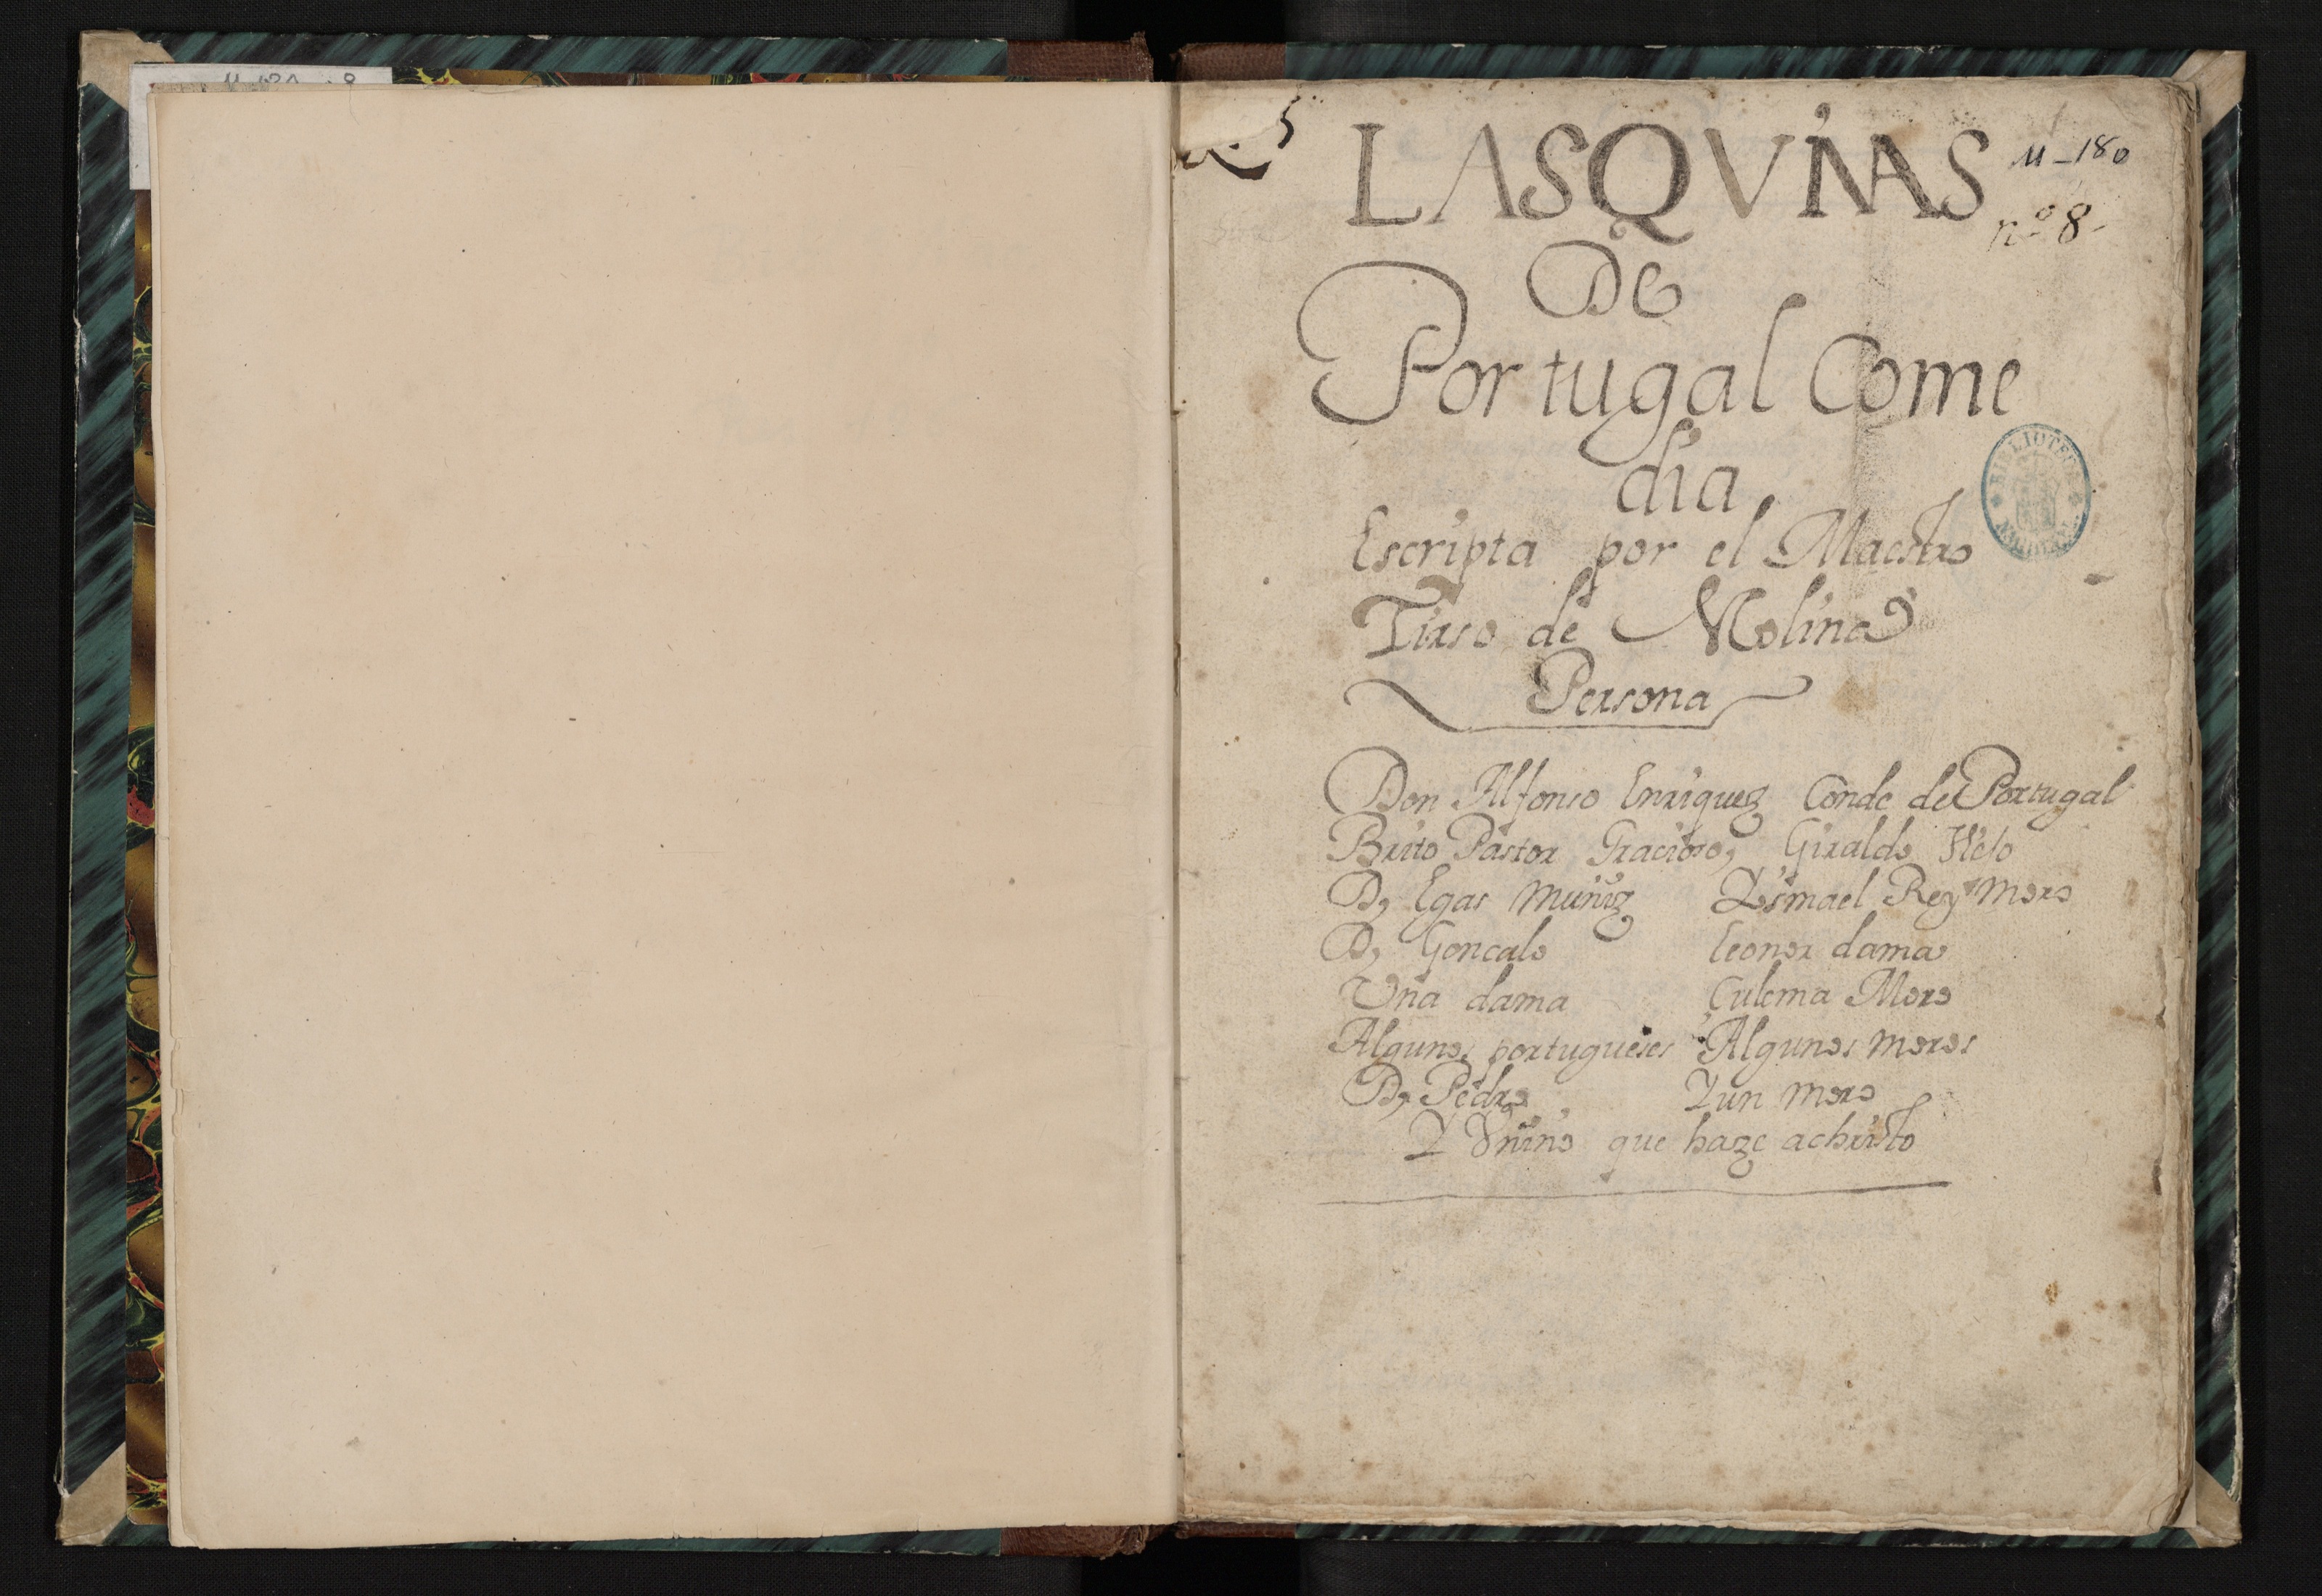 5
LASQVINAS
M-180
nº 8-
De
Portugal Come
dia
BIBLIOTECA NACIONAL
Escripta por el Maestro
Tirso de Molina
Persona
Don Alfonso Enriquez Conde de Portugal
Brito Pastor Gracioso, Giraldo Viejo
D, Egas muñiz Ysmael Rey Moro
D, Goncalo Leonor dama
Vna dama Çulema Moro
Algunos portugueses Algunos moros
D, Pedro Y un moro
Y Vniño que haze achristo